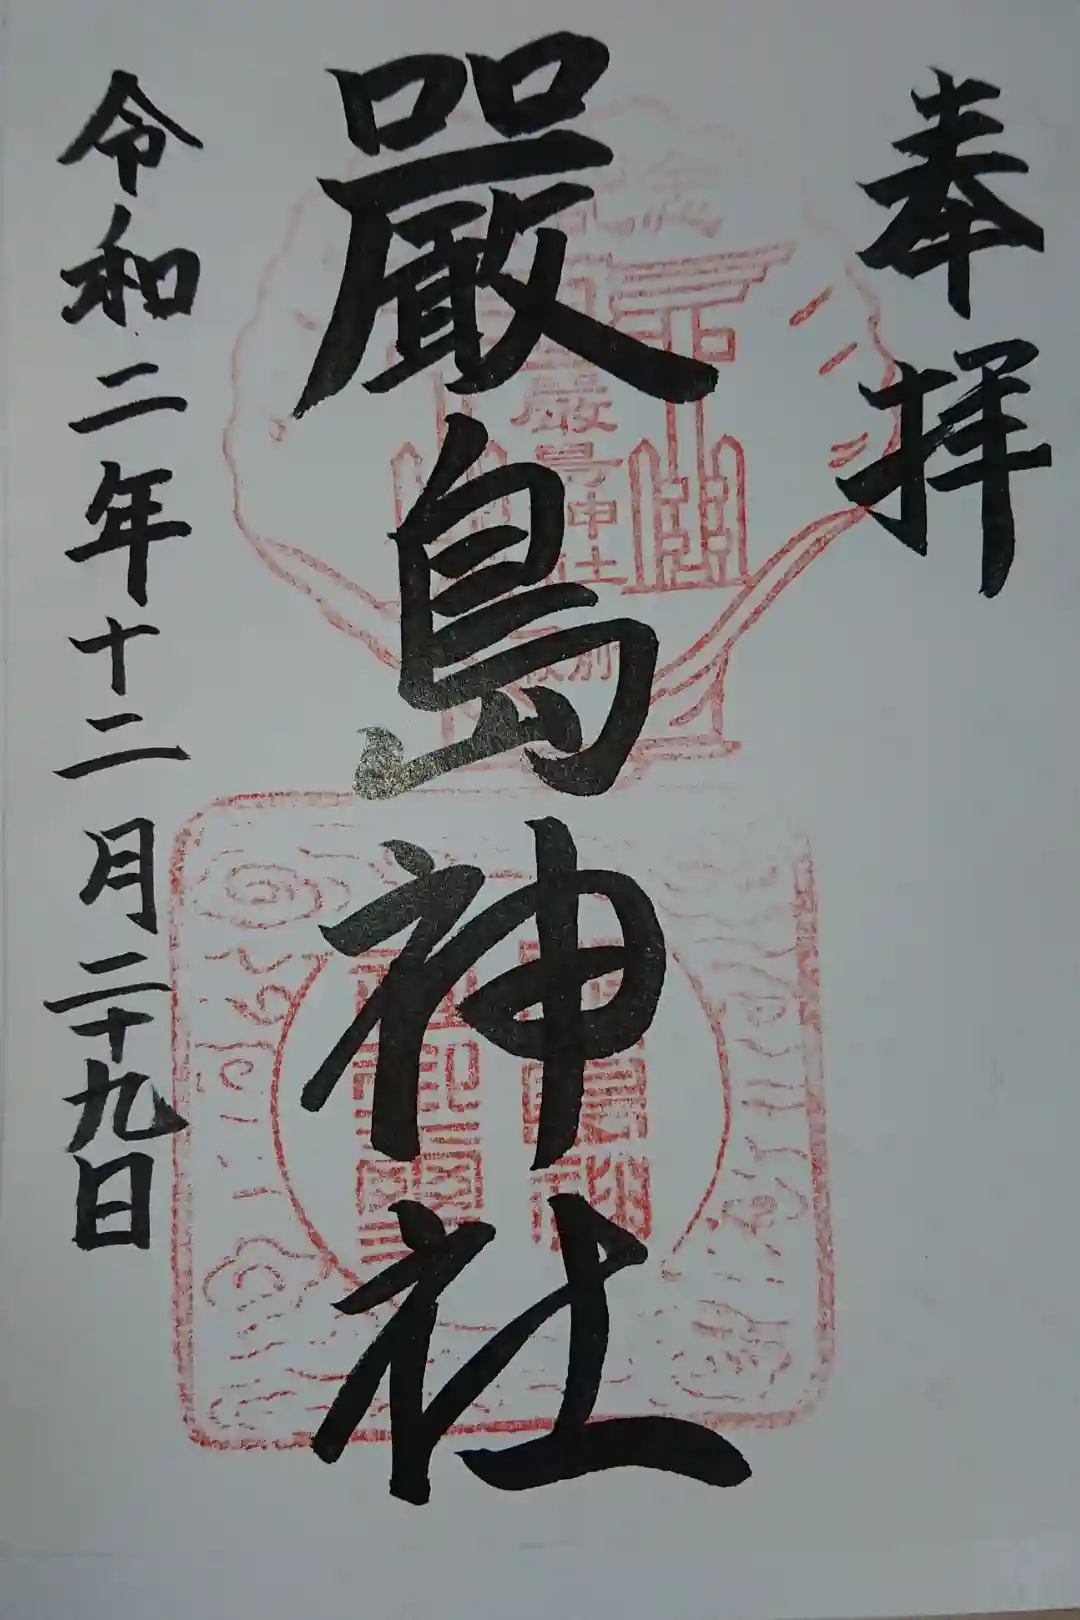 奉拝
嚴島神社
令和二年十二月二十九日
嚴島神社